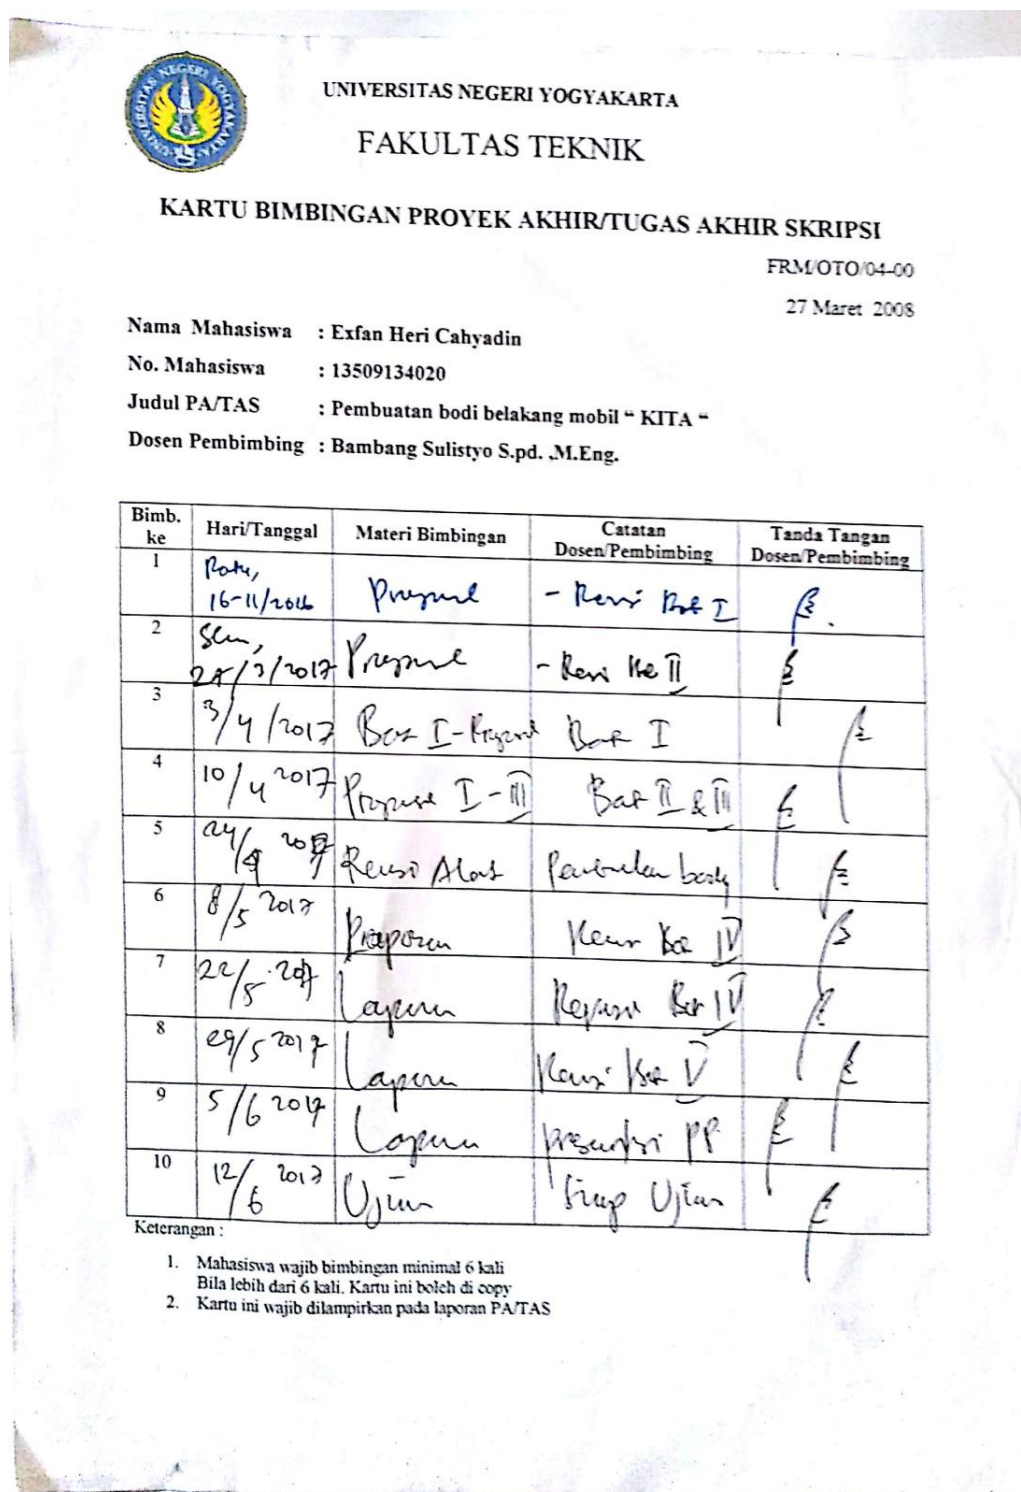 UNIVERSITAS NEGERI YOGYAKARTA
UNIVERSITAS NEGERI YOGYAKARTA
FAKULTAS TEKNIK
KARTU BIMBINGAN PROYEK AKHIR/TUGAS AKHIR SKRIPSI
FRM/OTO/04-00
27 Maret 2008
Nama Mahasiswa : Exfan Heri Cahyadin
No. Mahasiswa : 13509134020
Judul PA/TAS : Pembuatan bodi belakang mobil “ KITA “
Dosen Pembimbing : Bambang Sulistyo S.pd. .M.Eng.
Bimb. ke Hari/Tanggal Materi Bimbingan Catatan Dosen/Pembimbing Tanda Tangan Dosen/Pembimbing
1 Rabu, 16-11/2016 Proposal - Revisi Bab I
2 3/2017 Proposal - Revisi II
3 3/4/2017 Bab I - Proposal Bab I
4 10/4 2017 Proposal I - III Bab II & III
5 24/4 2017 Revisi Alat body
6 8/5 2017 Bab IV
7 22/5 2017 Laporan Bab IV
8 29/5 2017 Laporan Revisi Bab V
9 5/6 2017 Laporan presentasi PP
10 12/6 2017 Ujian Siap Ujian
Keterangan :
1. Mahasiswa wajib bimbingan minimal 6 kali
Bila lebih dari 6 kali. Kartu ini boleh di copy
2. Kartu ini wajib dilampirkan pada laporan PA/TAS